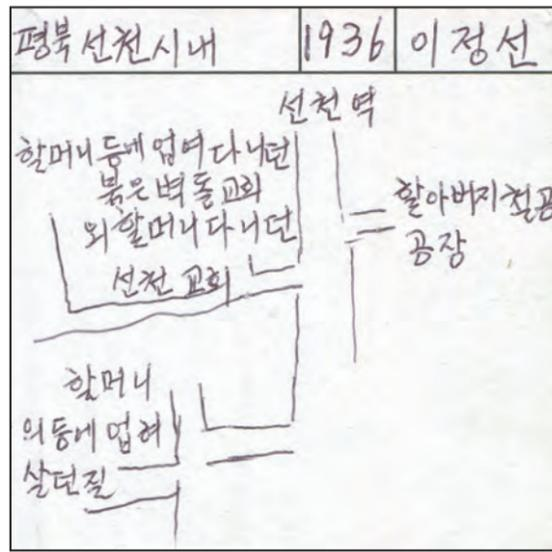 평북 선천시내 1936 이정선
선천역
할머니 등에 업여 다니던
붉은 벽돌교회
외할머니 다니던
선천 교회
할아버지철공
공장
할머니
의등에 업혀
살던질